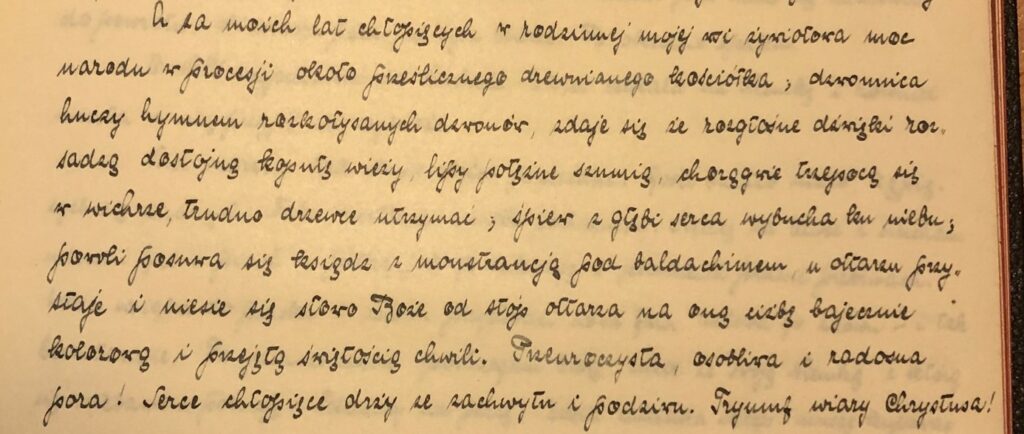 A za moich lat chłopięcych w rodzinnej mojej wsi żywiołowa moc
narodu w procesji około prześlicznego drewnianego kościółka; dzwonnica
huczy hymnem rozkołysanych dzwonów, zdaje się że rozgłośne dźwięki roz-
sadzą dostojną kopułę wieży, lipy potężne szumią, chorągwie trzepocą się
w wichrze, trudno drzewce utrzymać; śpiew z głębi serca wybucha ku niebu;
powoli posuwa się ksiądz z monstrancją pod baldachimem, u ołtarza przy-
staje i niesie się słowo Boże od stóp ołtarza na oną ciżbę bajecznie
kolorową i przejętą świętością chwili. Przeuroczysta, osobliwa i radosna
pora! Serce chłopięce drży ze zachwytu i podziwu. Tryumf wiary Chrystusa!